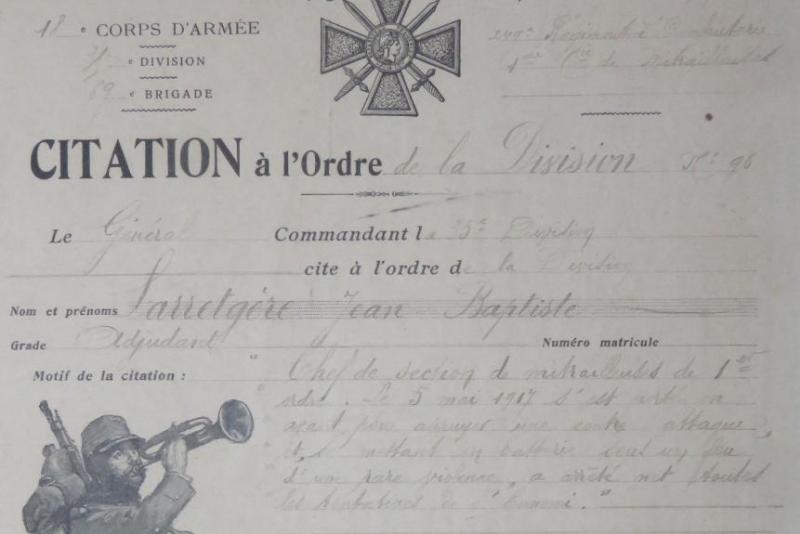 18 e CORPS D'ARMÉE
35 e DIVISION
69 e BRIGADE
249e Régiment d'Infanterie
1ère Cie de mitrailleuses
CITATION à l'Ordre de la Division No 96
Le Général Commandant la 35e Division
cite à l'ordre de la Division
Nom et prénoms Larretgère Jean Baptiste
Grade Adjudant Numéro matricule
Motif de la citation : " Chef de section de mitrailleuses de 1er
ordre. Le 5 mai 1917 s'est porté en
avant pour appuyer une contre attaque,
et se mettant en batterie sous un feu
d'une rare violence, a arrêté net toutes
les tentatives de l'Ennemi. "